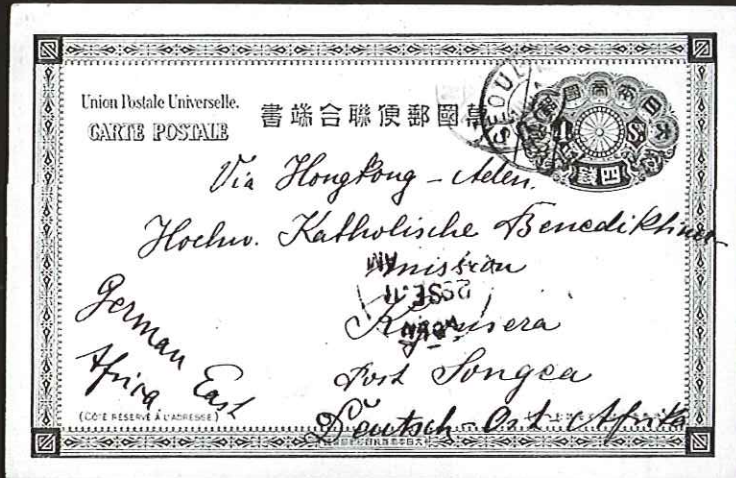 Union Postale Universelle.
CARTE POSTALE
萬國郵便聯合端書
SEOUL
大日本帝國郵便
四錢
Via Hongkong - Aden.
Hochw. Katholische Benediktiner
mission
Kigonsera
Post Songea
Deutsch-Ost-Afrika
German
East
Africa
ADEN
SE. 11
AM
(CÔTÉ RÉSERVÉ À L'ADRESSE)